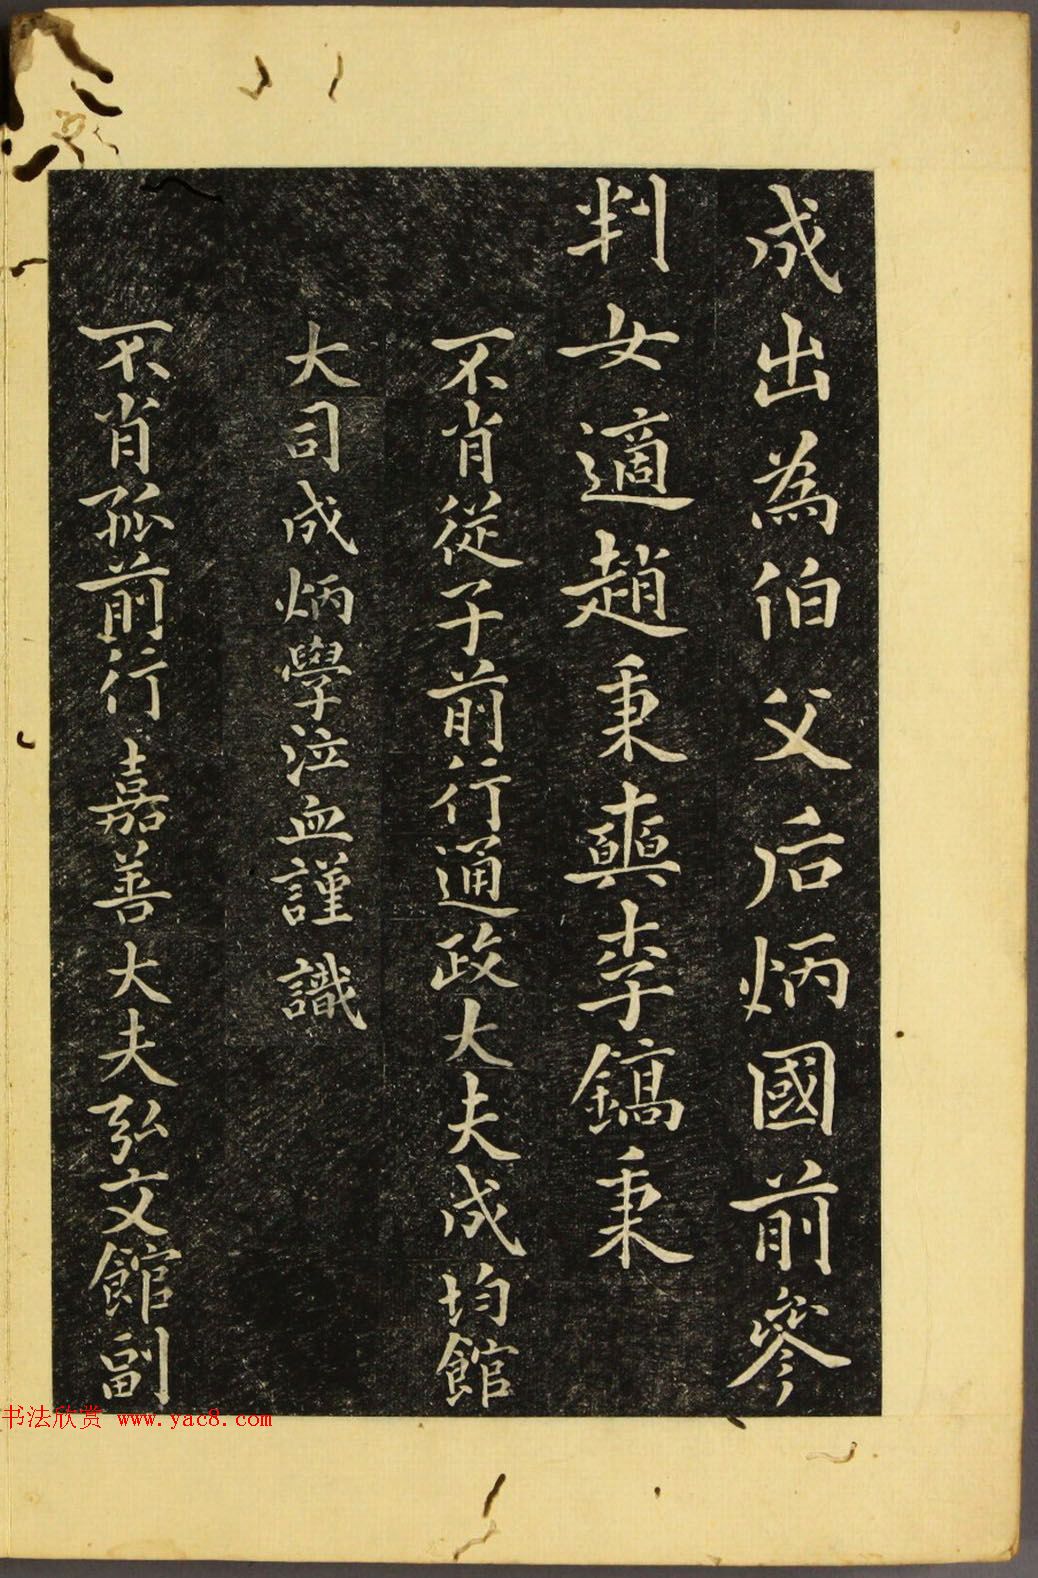 成出為伯父后炳國前參
判女適趙秉䕫李鎬秉
不肖從子前行通政大夫成均館
大司成炳學泣血謹識
不肖孤前行嘉善大夫弘文館副
书法欣赏 www.yac8.com